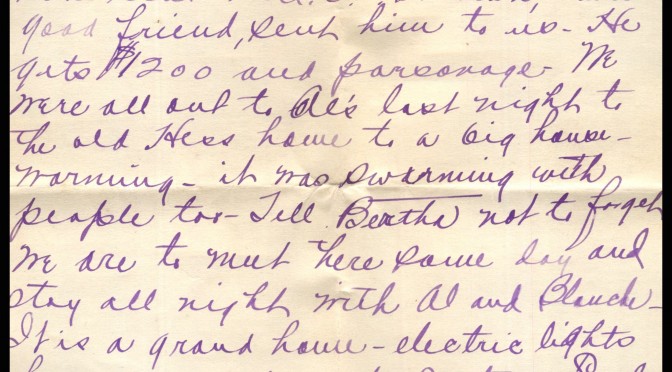 good friend, sent him to us - He
gets $1200 and parsonage - We
were all out to Al's last night to
the old Hess home to a big house-
warming - it was swarming with
people too - Tell Bertha not to forget
We are to meet here some day and
stay all night with Al and Blanche -
It is a grand home - electric lights